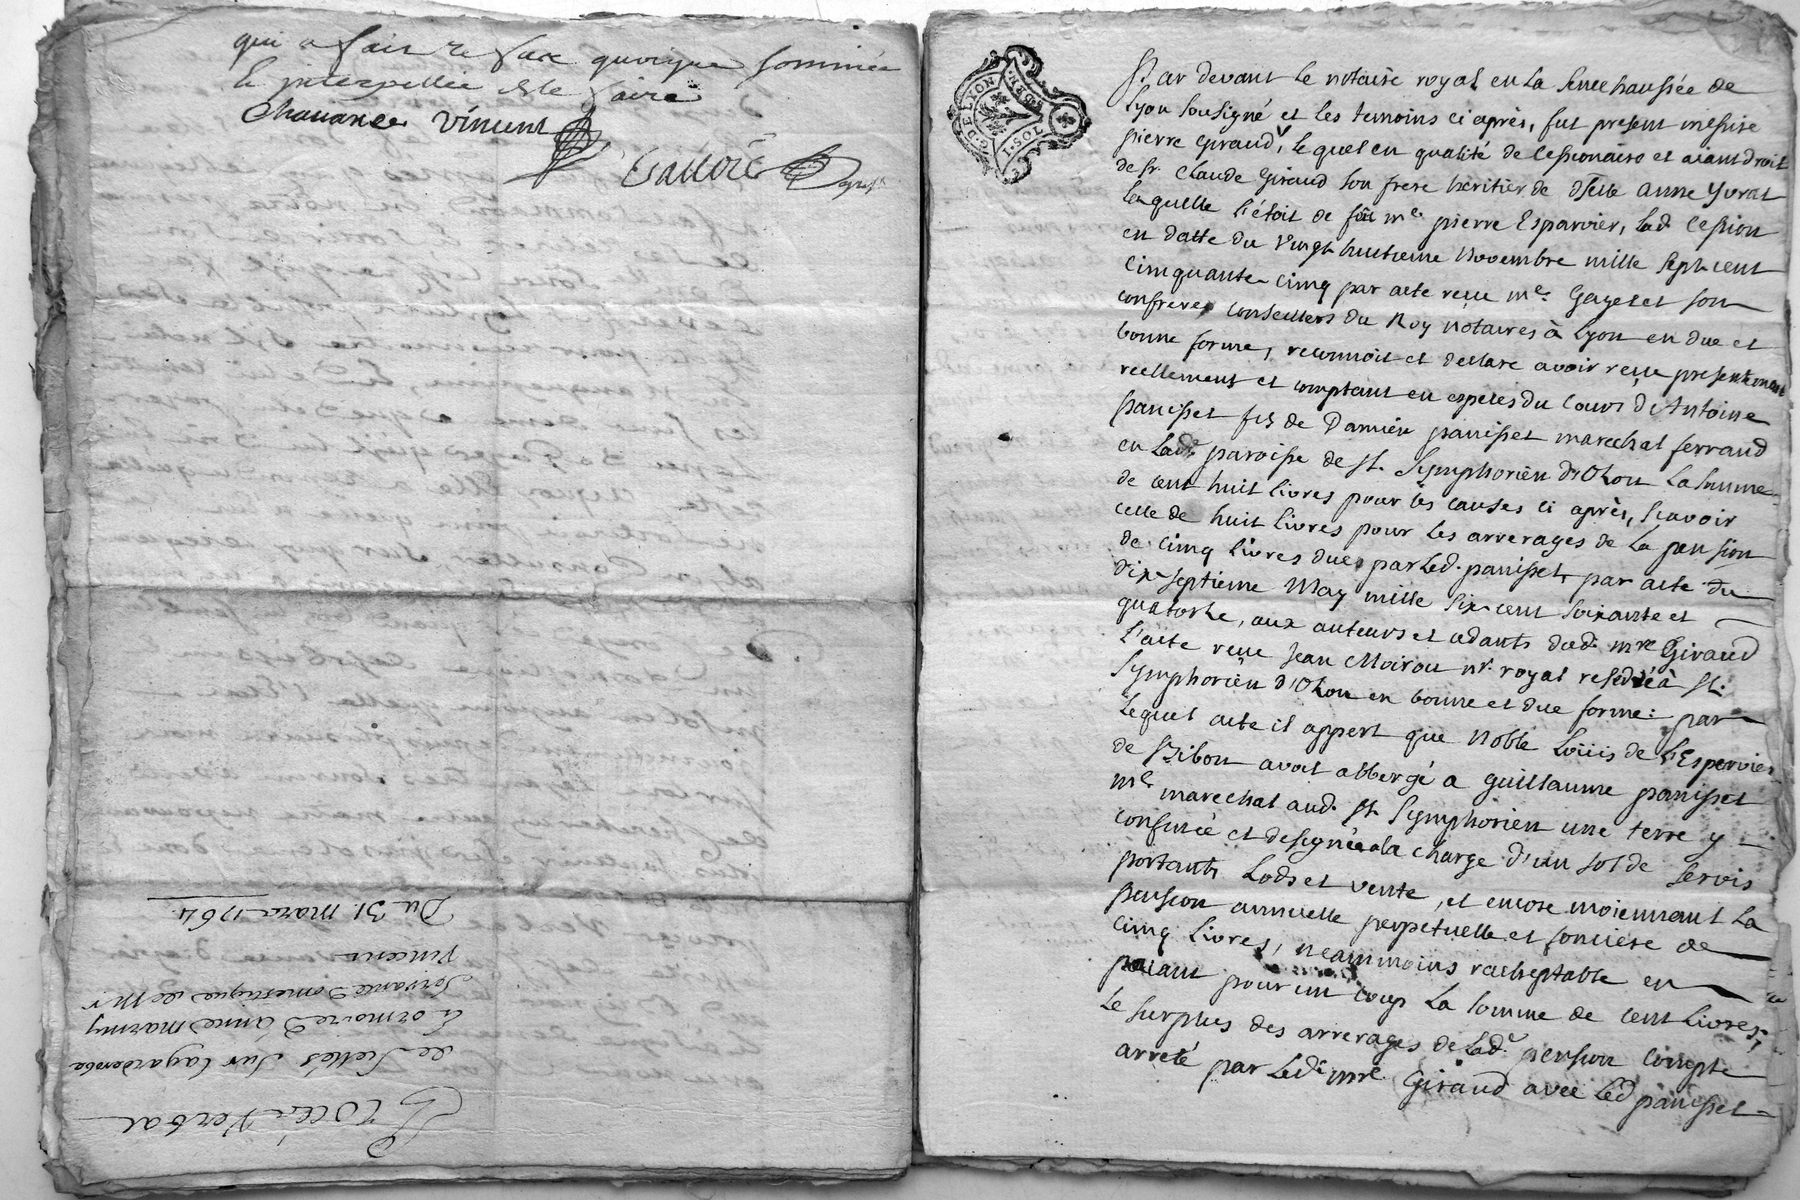 qui a fait refus quoique sommée
& interpellée de le faire
Chavance Vincent
Du 31. mars 1764.
Vincent
servante domestique de Mr
L'armoire d'anne marmy
de scellés sur la garderobe
Procés Verbal
G. D. LYON
1. SOL
Par devant le notaire royal en la Senechaussée de
Lyon soussigné et les temoins ci après, fut present messire
pierre Giraud, lequel en qualité de cessionaire et aiant droit
de Sr. Claude Giraud son frere heritier de dselle anne yvrat
laquelle l'étoit de fût me pierre Esparvier, lad. cession
en datte du vingt huitieme Novembre mille sept cent
cinquante cinq par acte reçu me. Gayet et son
confrere conseillers du Roy notaires à Lyon en due et
bonne forme, reconnoit et declare avoir reçu presentement
reellement et comptant en especes du cours d'Antoine
panisset fils de Damien panisset marechal ferrand
en lade. paroisse de st. Symphorien d'Ozon la somme
de cent huit livres pour les causes ci après, sçavoir
celle de huit livres pour les arrerages de la pension
de cinq livres dues par led. panisset, par acte du
dix septieme May mille six cent soixante et
quatorze, aux auteurs et cedants dud. mre Giraud
l'acte reçu Jean Moirou nre. royal reservé à st.
Symphorien d'Ozon en bonne et due forme: par
lequel acte il appert que Noble Loüis de L'Espervier
de avoit albergé a guillaume panisset
me marechal aud. st. Symphorien une terre y
confinée et designée à la charge d'un sol de servis
portants Lods et vente, et encore moiennant la
pension annuelle perpetuelle et fonciere de
cinq livres, neammoins racheptable en
païant pour un coup la somme de cent livres;
le surplus des arrerages de lade. pension compte
arreté par ledit mre Giraud avec led panisset